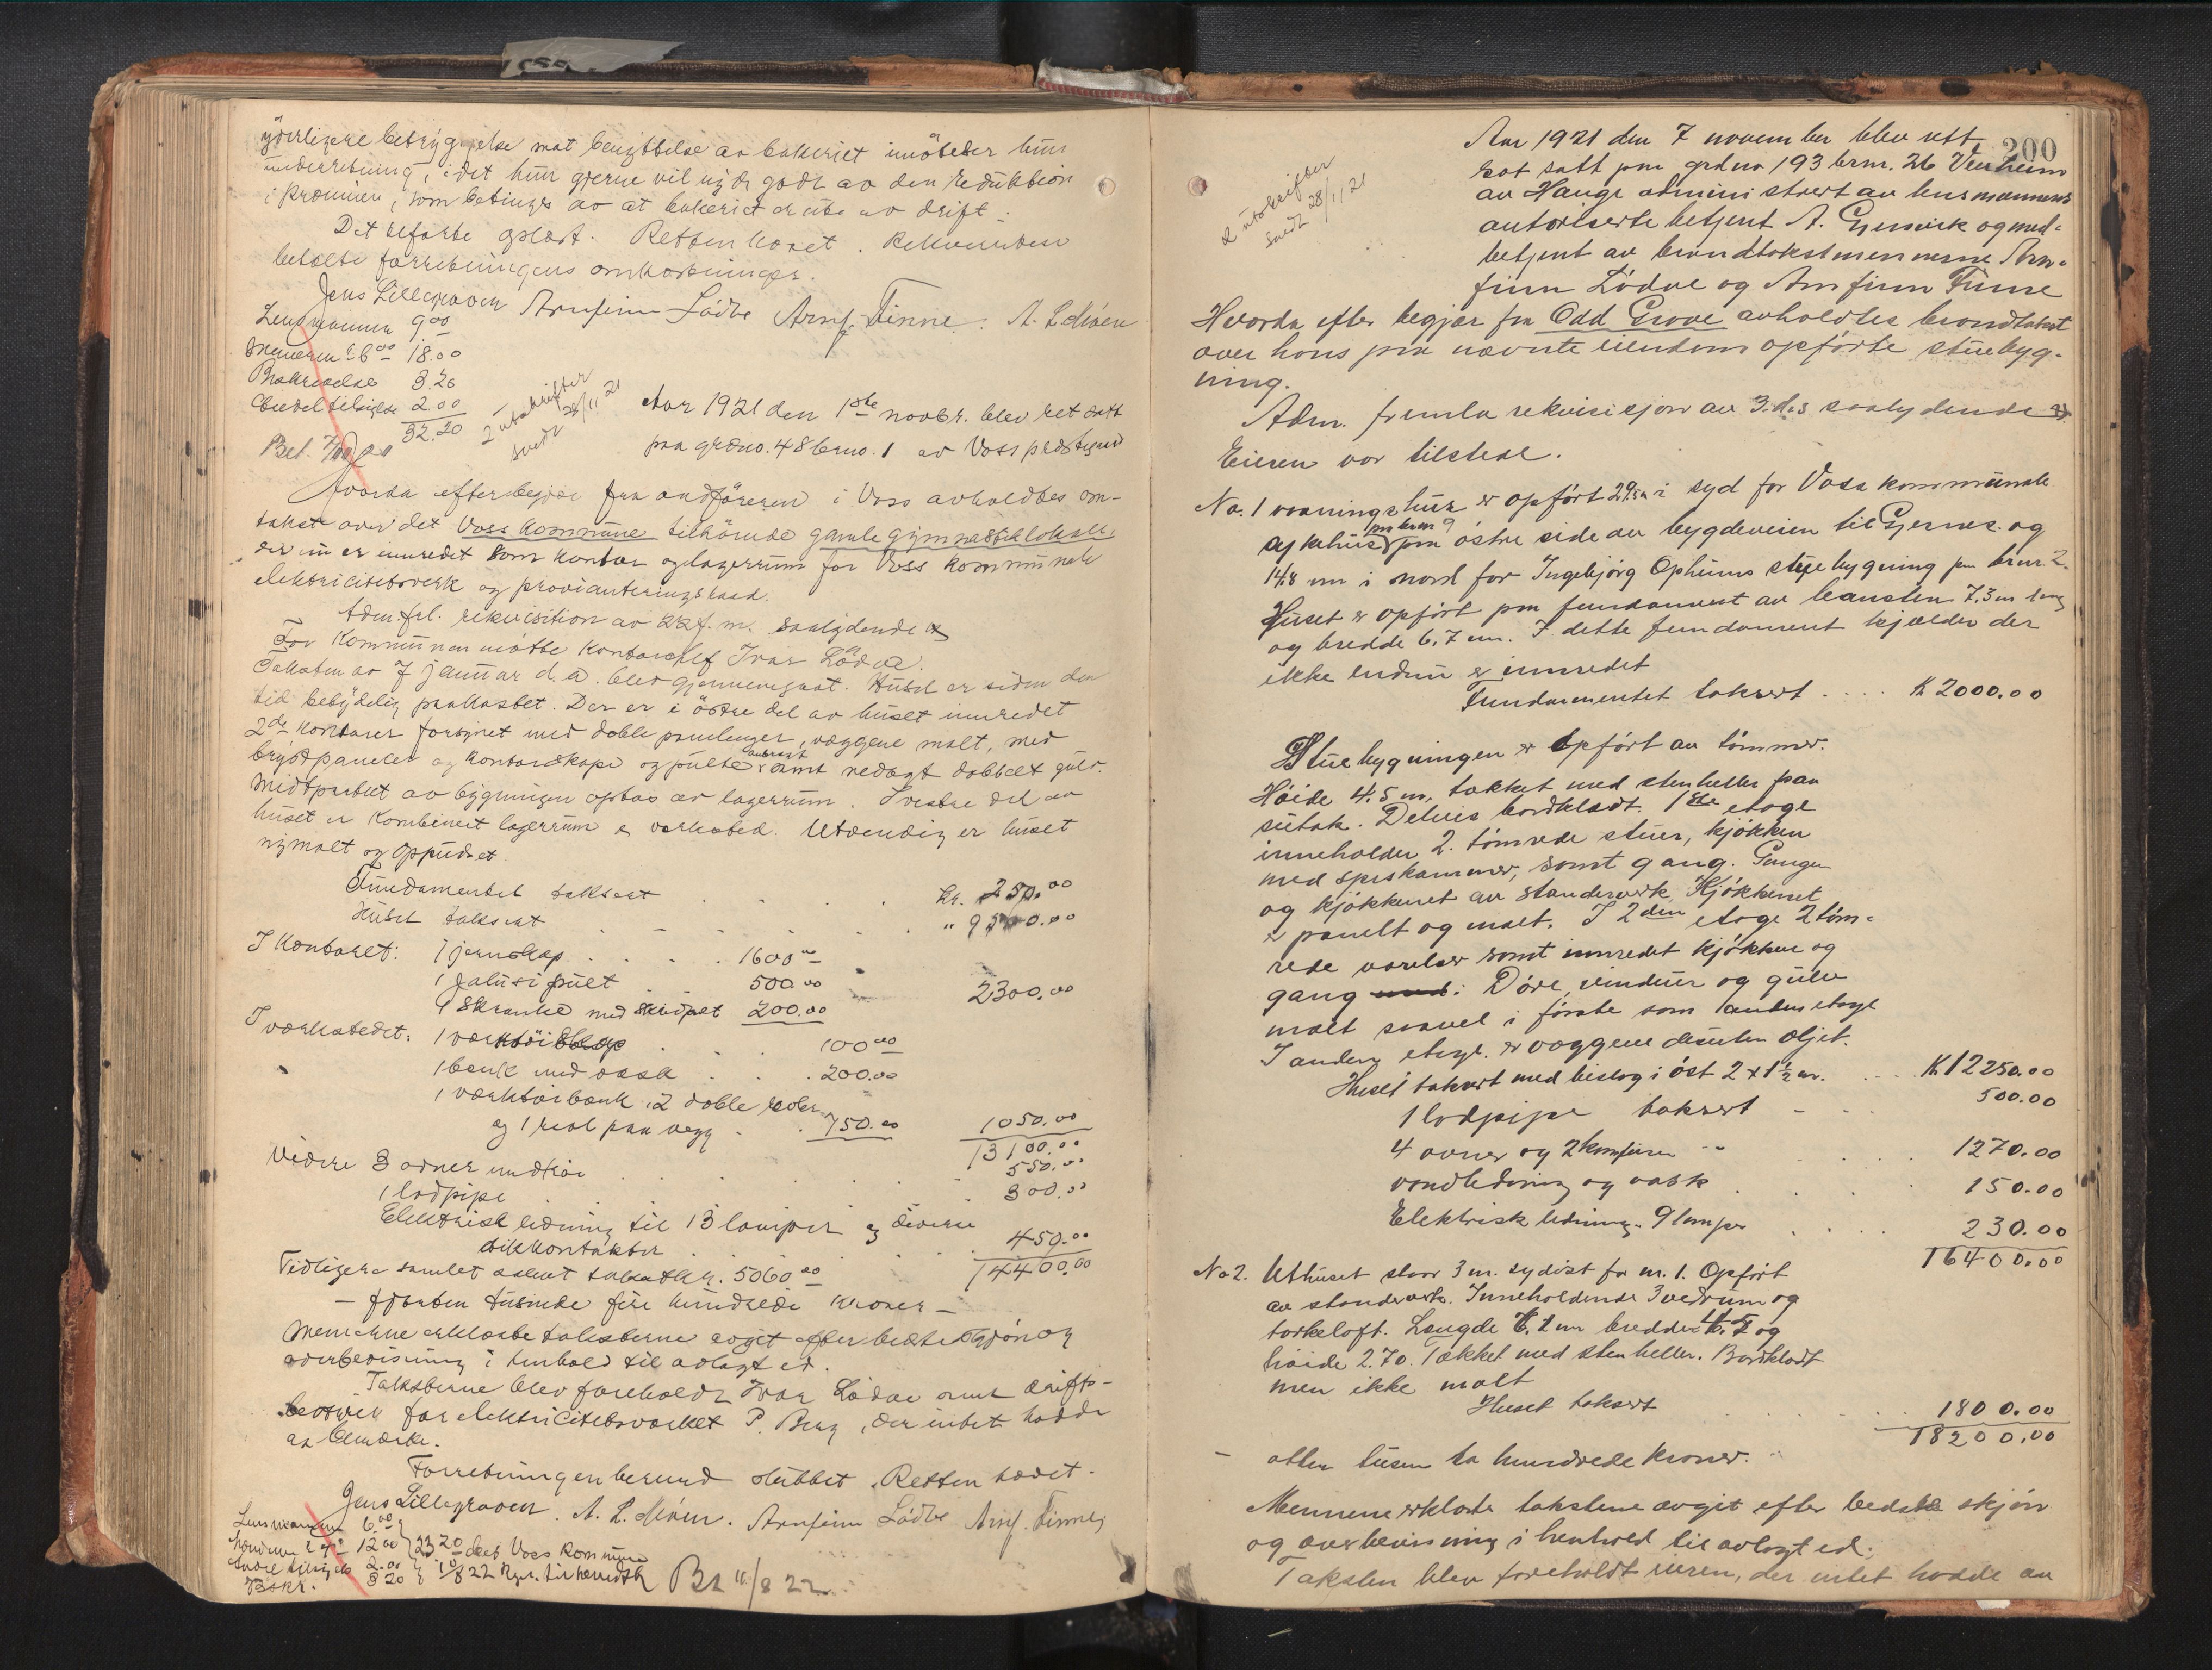 yderligere betryggelse mot benyttelse av bakeriet imöteser hun
underretning, idet hun gjerne vil nyde godt av den reduktion
i præmien, som betinges av at bakeriet er ute av drift.
Det referte oplæst. Retten hævet. Rekvirenten
betalte forretningens omkostninger.
Jens Lillegraven Arnfinn Lödve Arnf. Finne. A. L. Meen
Lensmannen 9.00
Mennene à 6.00 18.00
Beskrivelse 3.20
2.00
32.20
2 utskrifter
sendt 28/11 21
Aar 1921 den 1ste novbr. blev ret satt
paa grdno. 48 brno. 1 av Voss prestegard
Hvorda efter begjær fra ordföreren i Voss avholdtes om-
takst over det Voss kommune tilhörende gamle gymnastiklokale,
der nu er innredet som kontor og lagerrum for Voss kommunale
elektricitetsverk og provianteringsraad.
Adm. frl. rekvisition av 22 f. m. saalydende
For kommunen mötte kontorchef Ivar Lödve.
Taksten av 7 januar d. a. blev gjennemgaat. Huset er siden den
tid betydelig paakostet. Der er i östre del av huset innredet
2de kontorer forsynet med doble panelinger, væggene malt, med
brystpaneler og kontorskape og pulte anbragt samt nedlagt dobbelt gulv.
Midtpartiet av bygningen optas av lagerrum. I vestre del av
huset er kombinert lagerrum & verksted. Utvendig er huset
nymalt og oppudset.
Fundamentet taksert . . . kr. 250.00
Huset taksert . . . " 9500.00
I kontoret: 1 jernskap . . . 1600.00
1 jalusipult . . 500.00
1 skranke med skuffet 200.00 2300.00
I verkstedet: 1 verktöiskap . . . 100.00
1 benk med vask . . . 200.00
1 verktöibenk, 2 doble reoler
og 1 reol paa vegg . . 750.00 1050.00
13100.00
Videre 3 ovner med rör . . . 550.00
1 lodpipe . . . 300.00
Elektrisk ledning til 13 lamper og diverse
stikkontakter . . . 450.00
Tidligere samlet assurert takst kr. 5060.00 14400.00
– fjorten tusinde fire hundrede kroner –
Mennene erklærte taksterne avgit efter bedste skjön og
overbevisning i henhold til avlagt ed.
Taksterne blev foreholdt Ivar Lödve samt drifts-
bestyrer for elektricitetsverket P. Berg, der intet hadde
at bemerke.
Forretningen dermed sluttet. Retten hævet.
Jens Lillegraven. A. L. Meen. Arnfinn Lödve Arnf. Finne
Lensmannen 6.00
12.00
2.00
3.20
23.20 Voss kommune
22
200
Aar 1921 den 7 november blev rett
satt paa grdno 193 brnr. 26 Vinheim
av Hauge administrert av lensmannens
autoriserte betjent A. Gjersvik og med-
betjent av brandtakstmennerne Arn-
finn Lödve og Arnfinn Finne
2 utskrifter
sendt 28/11 21
Hvorda efter begjær fra Odd Grove avholdtes brandtakst
over hans paa nævnte eiendom opförte stuebyg-
ning.
Adm. fremla rekvisisjon av 3. ds saalydende
Eieren var tilstede.
No. 1 vaaningshus er opfört 29.5 m i syd for Voss kommunale
sykehus paa brnr 9 paa östre side av bygdeveien til Gjernes og
14.8 m i nord for Ingebjörg Opheims stuebygning paa brnr 2.
Huset er opfört paa fundament av 7.3 m lang
og bredde 6.7 m. I dette fundament kjælder der
ikke endnu er innredet
Fundamentet taksert . . . . K 2000.00
Stuebygningen er opfört av tömmer.
Höide 4.5 m. takket med stenheller paa
sutak. Delvis bordklædt. 1ste etage
inneholder 2 tömrede stuer, kjökken
med spiskammer, samt gang. Gangen
og kjökkenet av standerverk. Kjökkenet
er panelt og malt. I 2den etage 2 töm-
rede værelser samt innredet kjökken og
gang. Döre, vinduer og gulv
malt saavel i förste som anden etage
I anden etage er væggene desuten oljet.
Huset taksert med bislag i öst 2 x 1½ m. . . . K 12250.00
1 lodpipe taksert – . . 500.00
4 ovner og 2 komfurer – " . . . 1270.00
vandledning og vask . . . 150.00
Elektrisk ledning. 9 lamper . . . 230.00
16400.00
No 2. Uthuset staar 3 m. sydöst for nr. 1. Opfört
av standerverk. Inneholdende 3 vedrum og
torkeloft. Længde 6.1 m bredde 4.5 og
höide 2.70. Tækket med stenheller. Bordklædt
men ikke malt
Huset taksert . . . 1800.00
18200.00
– atten tusen to hundrede kroner. –
Mennene erklærte takstene avgit efter bedste skjön
og overbevisning i henhold til avlagt ed.
Taksten blev foreholdt eieren, der intet hadde an